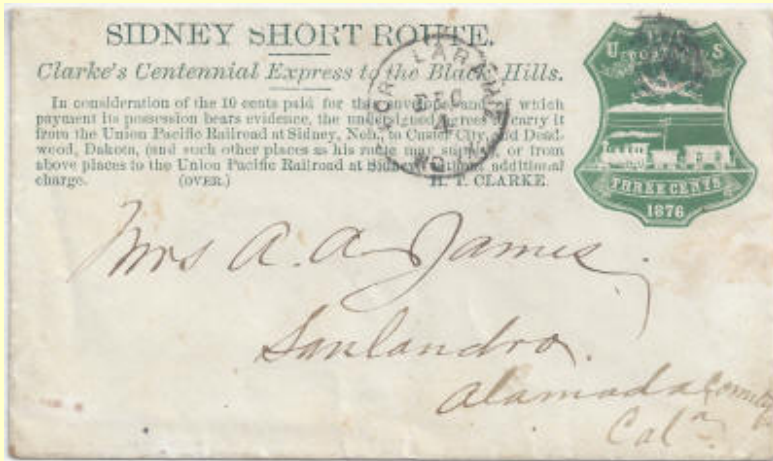 SIDNEY SHORT ROUTE.
Clarke's Centennial Express to the Black Hills.
In consideration of the 10 cents paid for this envelope, and of which
payment its possession bears evidence, the undersigned agrees to carry it
from the Union Pacific Railroad at Sidney, Neb., to Custer City, and Dead-
wood, Dakota, (and such other places as his route may supply, or from
above places to the Union Pacific Railroad at Sidney without additional
charge. (OVER.) H. T. CLARKE.
FOR LARAMIE
DEC
4
WYO
U S
THREE CENTS
1876
Mrs A. A. James,
Sanlandro.
Alamada County
Cal a.